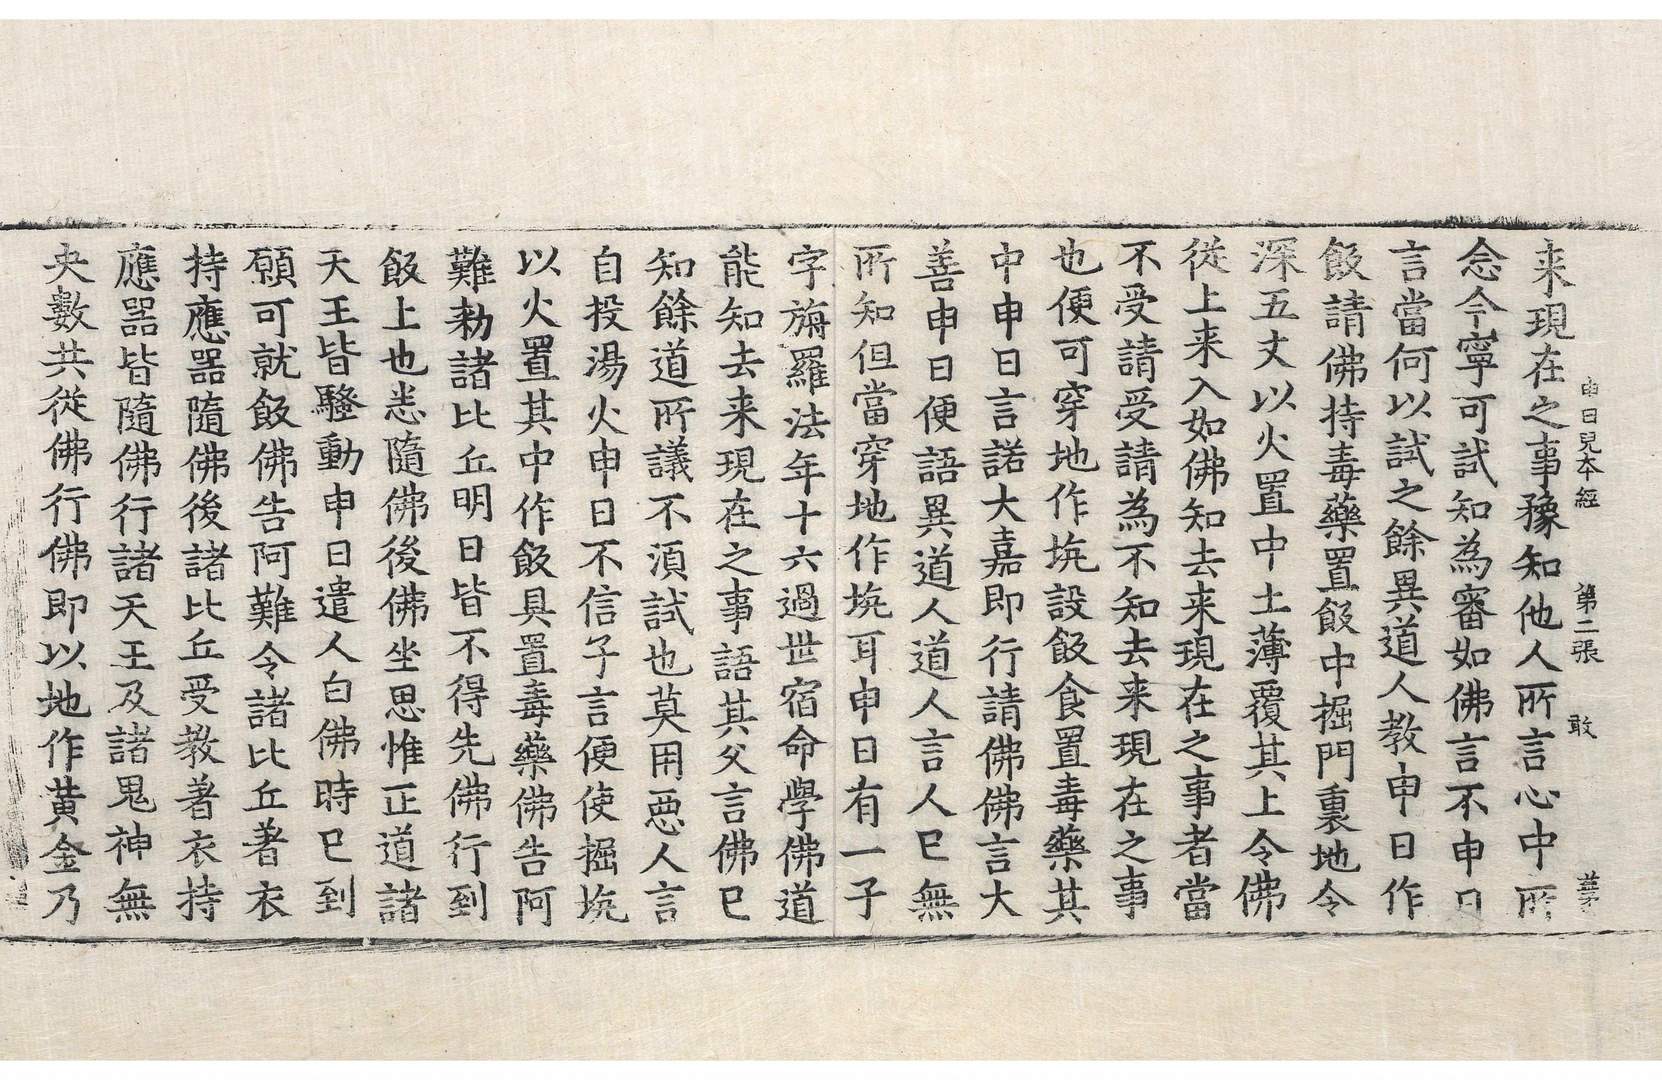 申日兒本經 第二張 敢
来現在之事豫知他人所言心中所
念今寧可試知為審如佛言不申日
言當何以試之餘異道人教申日作
飯請佛持毒藥置飯中掘門裏地令
深五丈以火置中土薄覆其上令佛
從上来入如佛知去来現在之事者當
不受請受請為不知去来現在之事
也便可穿地作埦設飯食置毒藥其
中申日言諾大嘉即行請佛佛言大
善申日便語異道人道人言人已無
所知但當穿地作埦耳申日有一子
字旃羅法年十六過世宿命學佛道
能知去来現在之事語其父言佛已
知餘道所議不湏試也莫用惡人言
自投湯火申日不信子言便使掘埦
以火置其中作飯具置毒藥佛告阿
難勑諸比丘明日皆不得先佛行到
飯上也悉隨佛後佛坐思惟正道諸
天王皆騷動申日遣人白佛時已到
願可就飯佛告阿難令諸比丘著衣
持應器隨佛後諸比丘受教著衣持
應器皆隨佛行諸天王及諸鬼神無
央數共從佛行佛即以地作黄金乃